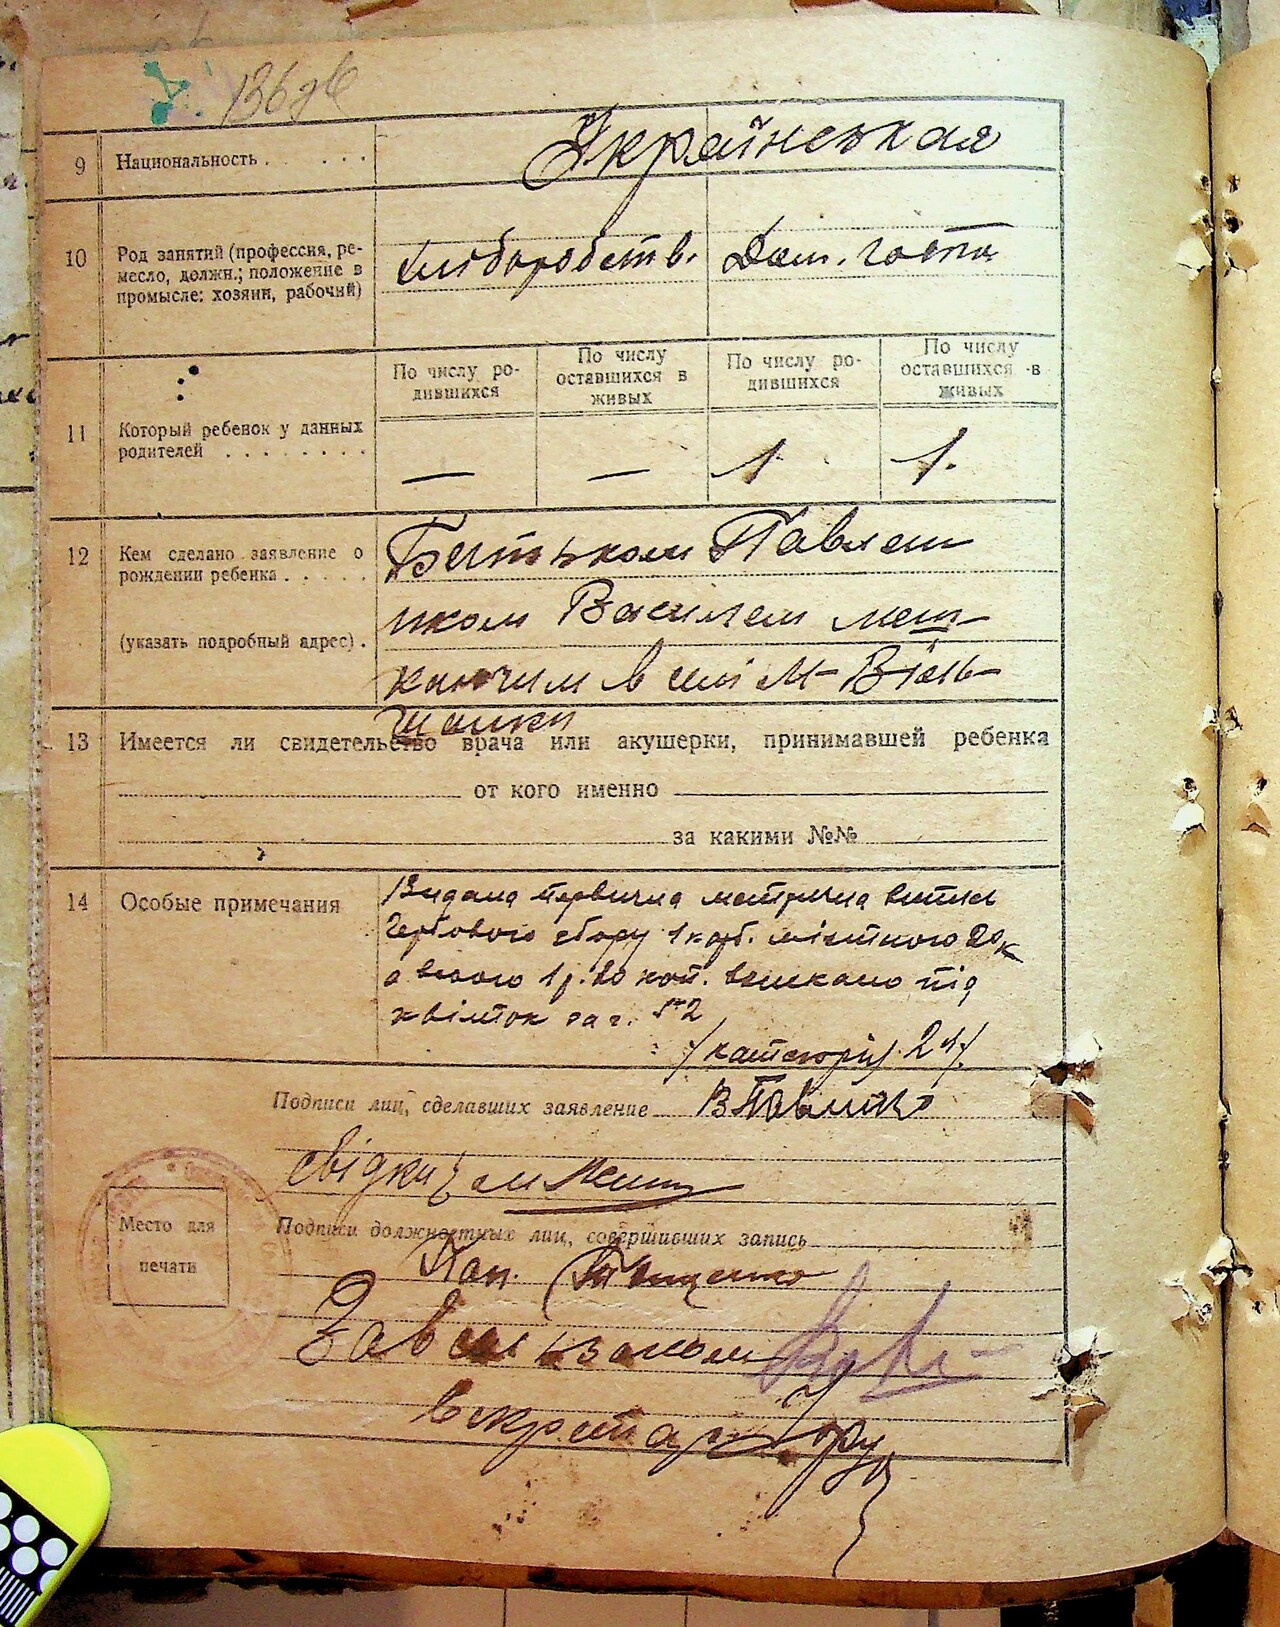 136 зв
9 Национальность . . . . . . Українськая
10 Род занятий (профессия, ре-
месло, должн.; положение в
промысле: хозяин, рабочий)
хліборобств. Дом. госпо
По числу ро-
дившихся
По числу
оставшихся в
живых
По числу ро-
дившихся
По числу
оставшихся в
живых
11 Который ребенок у данных
родителей . . . . . . . .
— — 1 1.
12 Кем сделано заявление о
рождении ребенка . . . . .
(указать подробный адрес) .
Батьком Павлен
иком Василем меш-
каючим в селі М-Віль-
шанки
13 Имеется ли свидетельство врача или акушерки, принимавшей ребенка
от кого именно
за какими №№
14 Особые примечания
Видана первична метрична витка
Гербового збору 1 карб. містного 20 к
а всього 1 р. 20 коп. взискано під
квіток за ч. 2
/категорія 2/
Подписи лиц, сделавших заявление В Павлик
свідки
Подписи должностных лиц, совершивших запись
Место для
печати
Зав
секретар